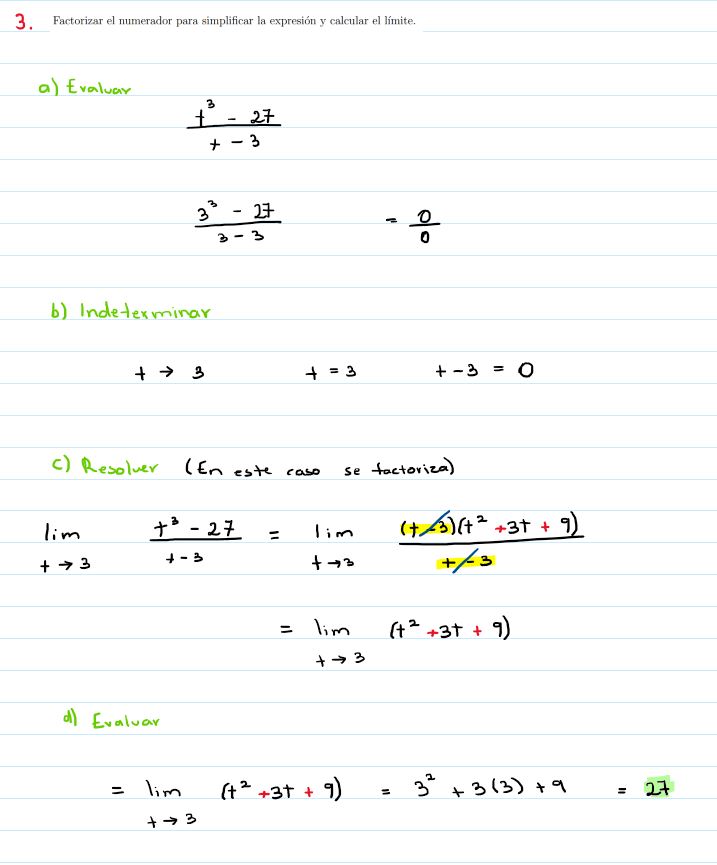 3. Factorizar el numerador para simplificar la expresión y calcular el límite.
a) Evaluar
t³ - 27
t - 3
3³ - 27 = 0
3 - 3 0
b) Indeterminar
t → 3 t = 3 t - 3 = 0
c) Resolver (En este caso se factoriza)
lim t³ - 27 = lim (t - 3)(t² + 3t + 9)
t → 3 t - 3 t → 3 t - 3
= lim (t² + 3t + 9)
t → 3
d) Evaluar
= lim (t² + 3t + 9) = 3² + 3(3) + 9 = 27
t → 3